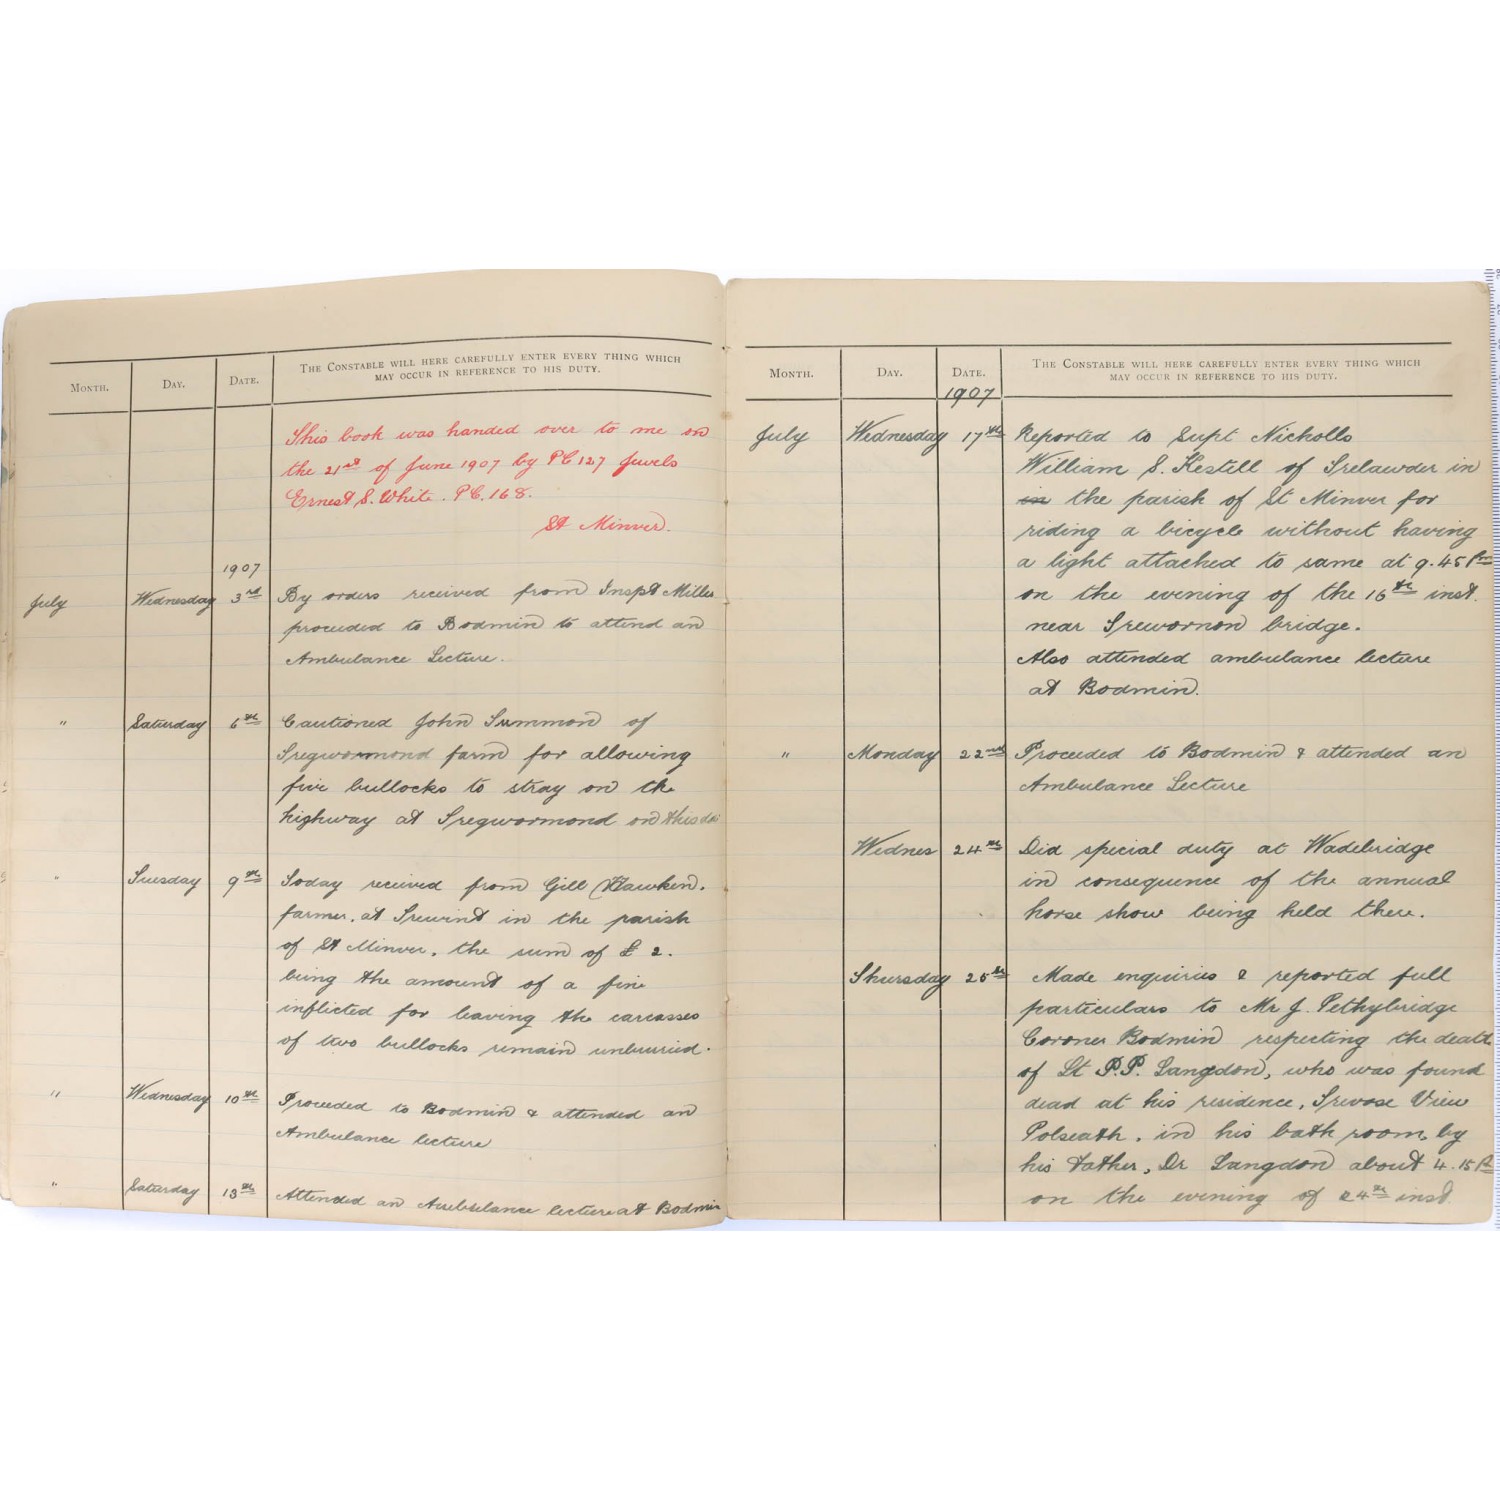 MONTH. DAY. DATE. THE CONSTABLE WILL HERE CAREFULLY ENTER EVERY THING WHICH
MAY OCCUR IN REFERENCE TO HIS DUTY.
This book was handed over to me on
the 21st of June 1907 by PC 127 Jewels
Ernest S. White. PC. 168.
St Minver.
1907
July Wednesday 3rd By orders received from Inspt Miller
proceeded to Bodmin to attend an
Ambulance Lecture.
" Saturday 6th Cautioned John Summon of
Tregwormond farm for allowing
five bullocks to stray on the
highway at Tregwormond on this da
" Tuesday 9th Today received from Gill (Hawken.
farmer. at Trewint in the parish
of St Minver. the sum of £ 2.
being the amount of a fine
inflicted for leaving the carcasses
of two bullocks remain unburried.
" Wednesday 10th Proceeded to Bodmin & attended an
Ambulance lecture
" Saturday 13th Attended an Ambulance lecture at Bodmin
MONTH. DAY. DATE. THE CONSTABLE WILL HERE CAREFULLY ENTER EVERY THING WHICH
MAY OCCUR IN REFERENCE TO HIS DUTY.
1907
July Wednesday 17th Reported to Supt Nicholls
William S. Kestell of Trelawder in
in the parish of St Minver for
riding a bicycle without having
a light attached to same at 9.45 Pm
on the evening of the 16th inst.
near Trewornon bridge.
Also attended ambulance lecture
at Bodmin.
" Monday 22nd Proceeded to Bodmin & attended an
Ambulance Lecture
Wednes 24th Did special duty at Wadebridge
in consequence of the annual
horse show being held there.
Thursday 25th Made enquiries & reported full
particulars to Mr J. Pethybridge
Coroner Bodmin respecting the death
of Lt P.P. Langdon, who was found
dead at his residence, Trevose View
Polseath. in his bath room, by
his Father, Dr Langdon about 4.15 Pm
on the evening of 24th inst.